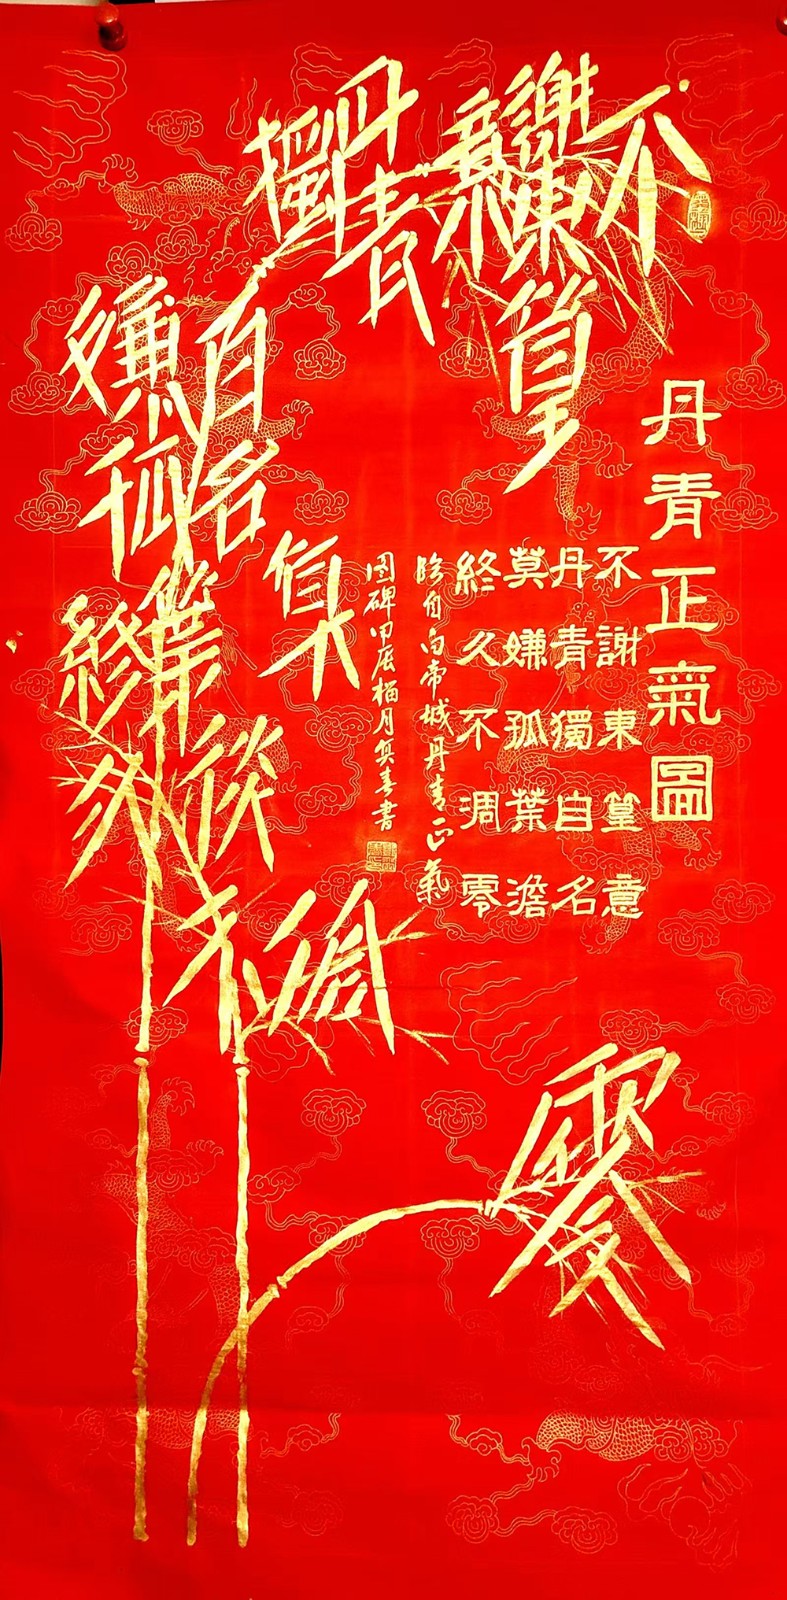 不謝東篁意
丹青獨自名
莫嫌孤葉澹
終久不凋零
丹青正氣圖
不謝東篁意
丹青獨自名
莫嫌孤葉澹
終久不凋零
臨自白帝城丹青正氣
圖碑甲辰月春書